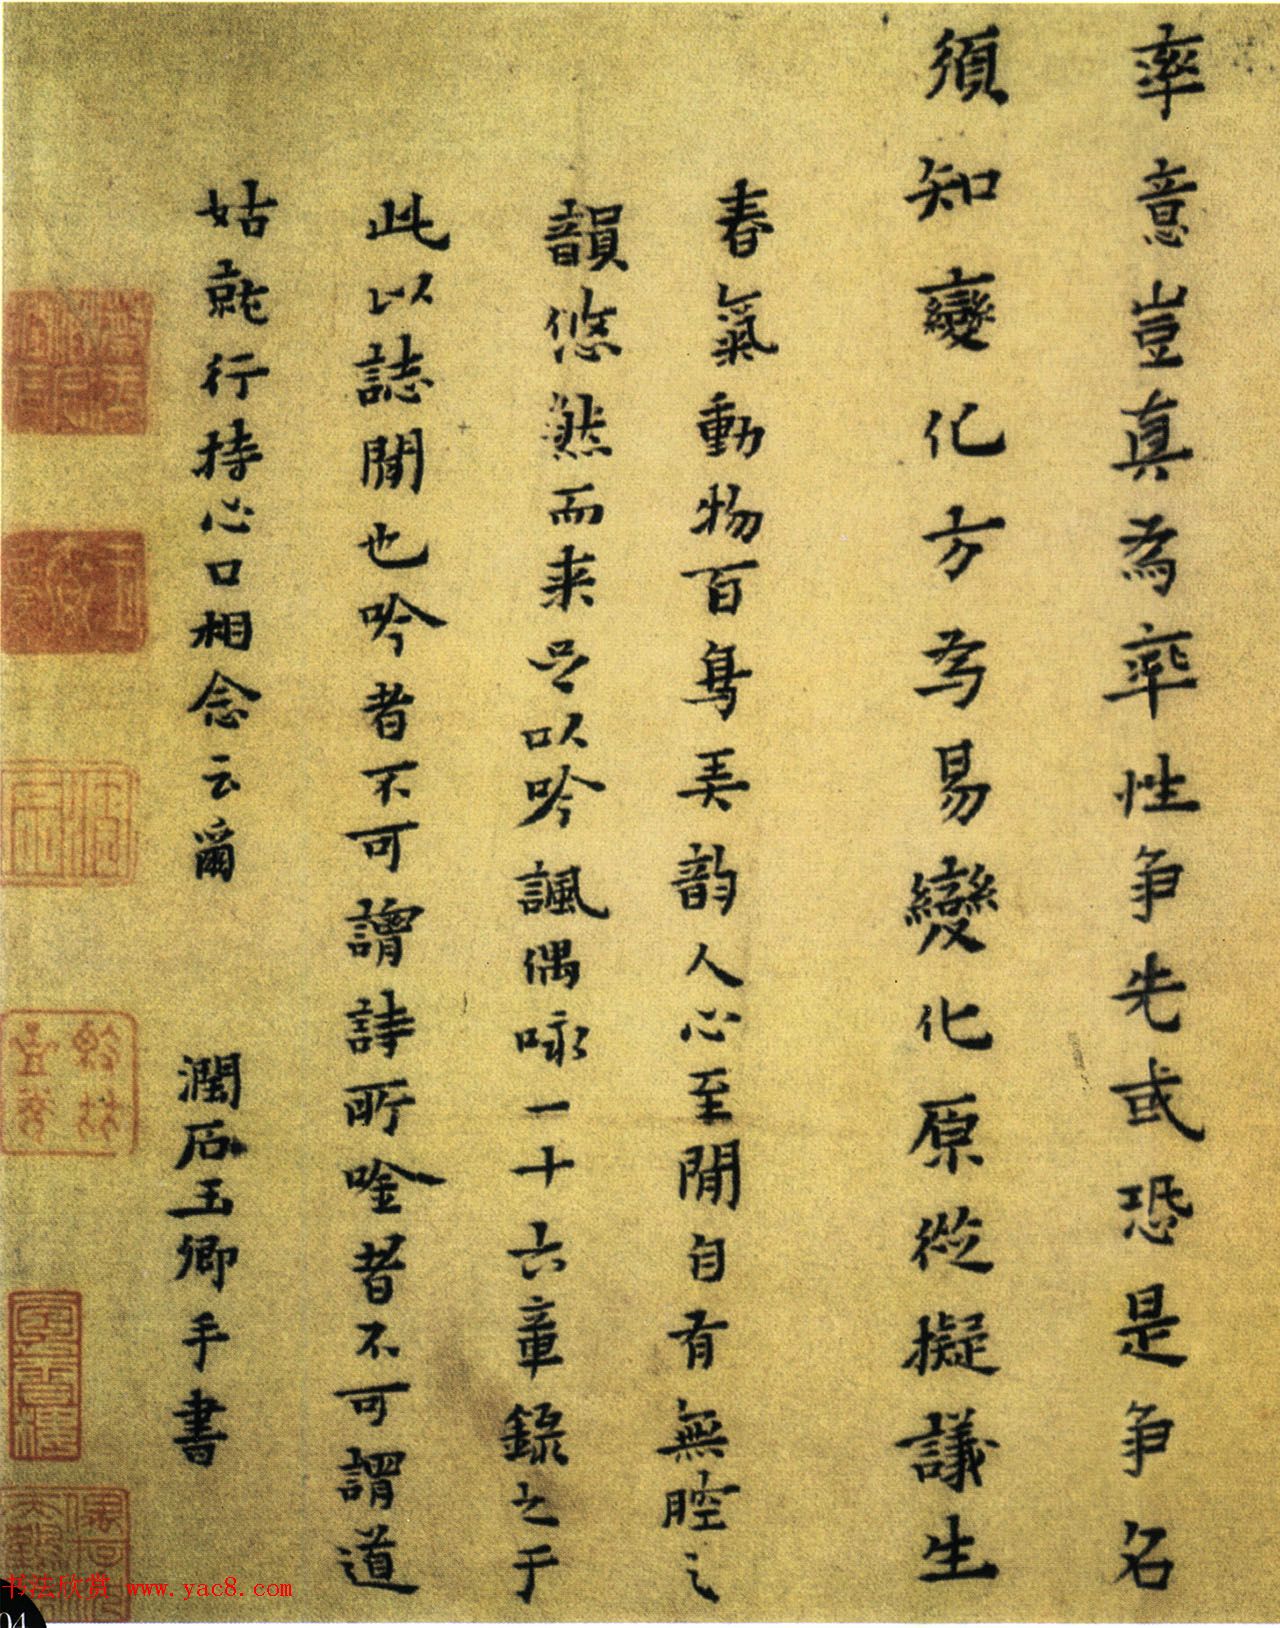 率意豈真為率性争先或恐是争名
須知變化方為易變化原從擬議生
春氣動物百鳥美韵人心至閒自有無腔之
韻悠然而来是以吟諷偶咏一十六章錄之于
此以誌閒也吟者不可謂詩所唫者不可謂道
姑就行持心口相念云爾
潤石玉卿手書
书法欣赏 www.yac8.com
04